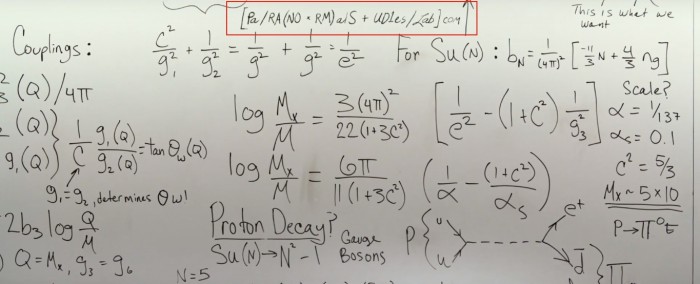 [Pa/RA(NO • RM)alS + UDLes/Lab] com
This is what we want
Couplings:
c²/g₁² + 1/g₂² = 1/g² + 1/g² = 1/e²
For Su(N): b_N = 1/(4π)² [-11/3 N + 4/3 ng]
(Q)/4π
(Q)
g₁(Q)
1/C g₁(Q)/g₂(Q) = tan θw(Q)
g₁=g₂, determines θw!
log Mx/M = 3(4π)²/22(1+3c²) [1/e² - (1+c²) 1/g₃²]
Scale?
α = 1/137
αs = 0.1
c² = 5/3
Mx ~ 5 x 10
log Mx/M = 6π/11(1+3c²) (1/α - (1+c²)/αs)
2b₃ log Q/M
Q = Mx, g₃ = g₆
Proton Decay?
Su(N) → N² - 1 Gauge Bosons
N=5
P { u u
e+
d̄ } Π
P → Π⁰e